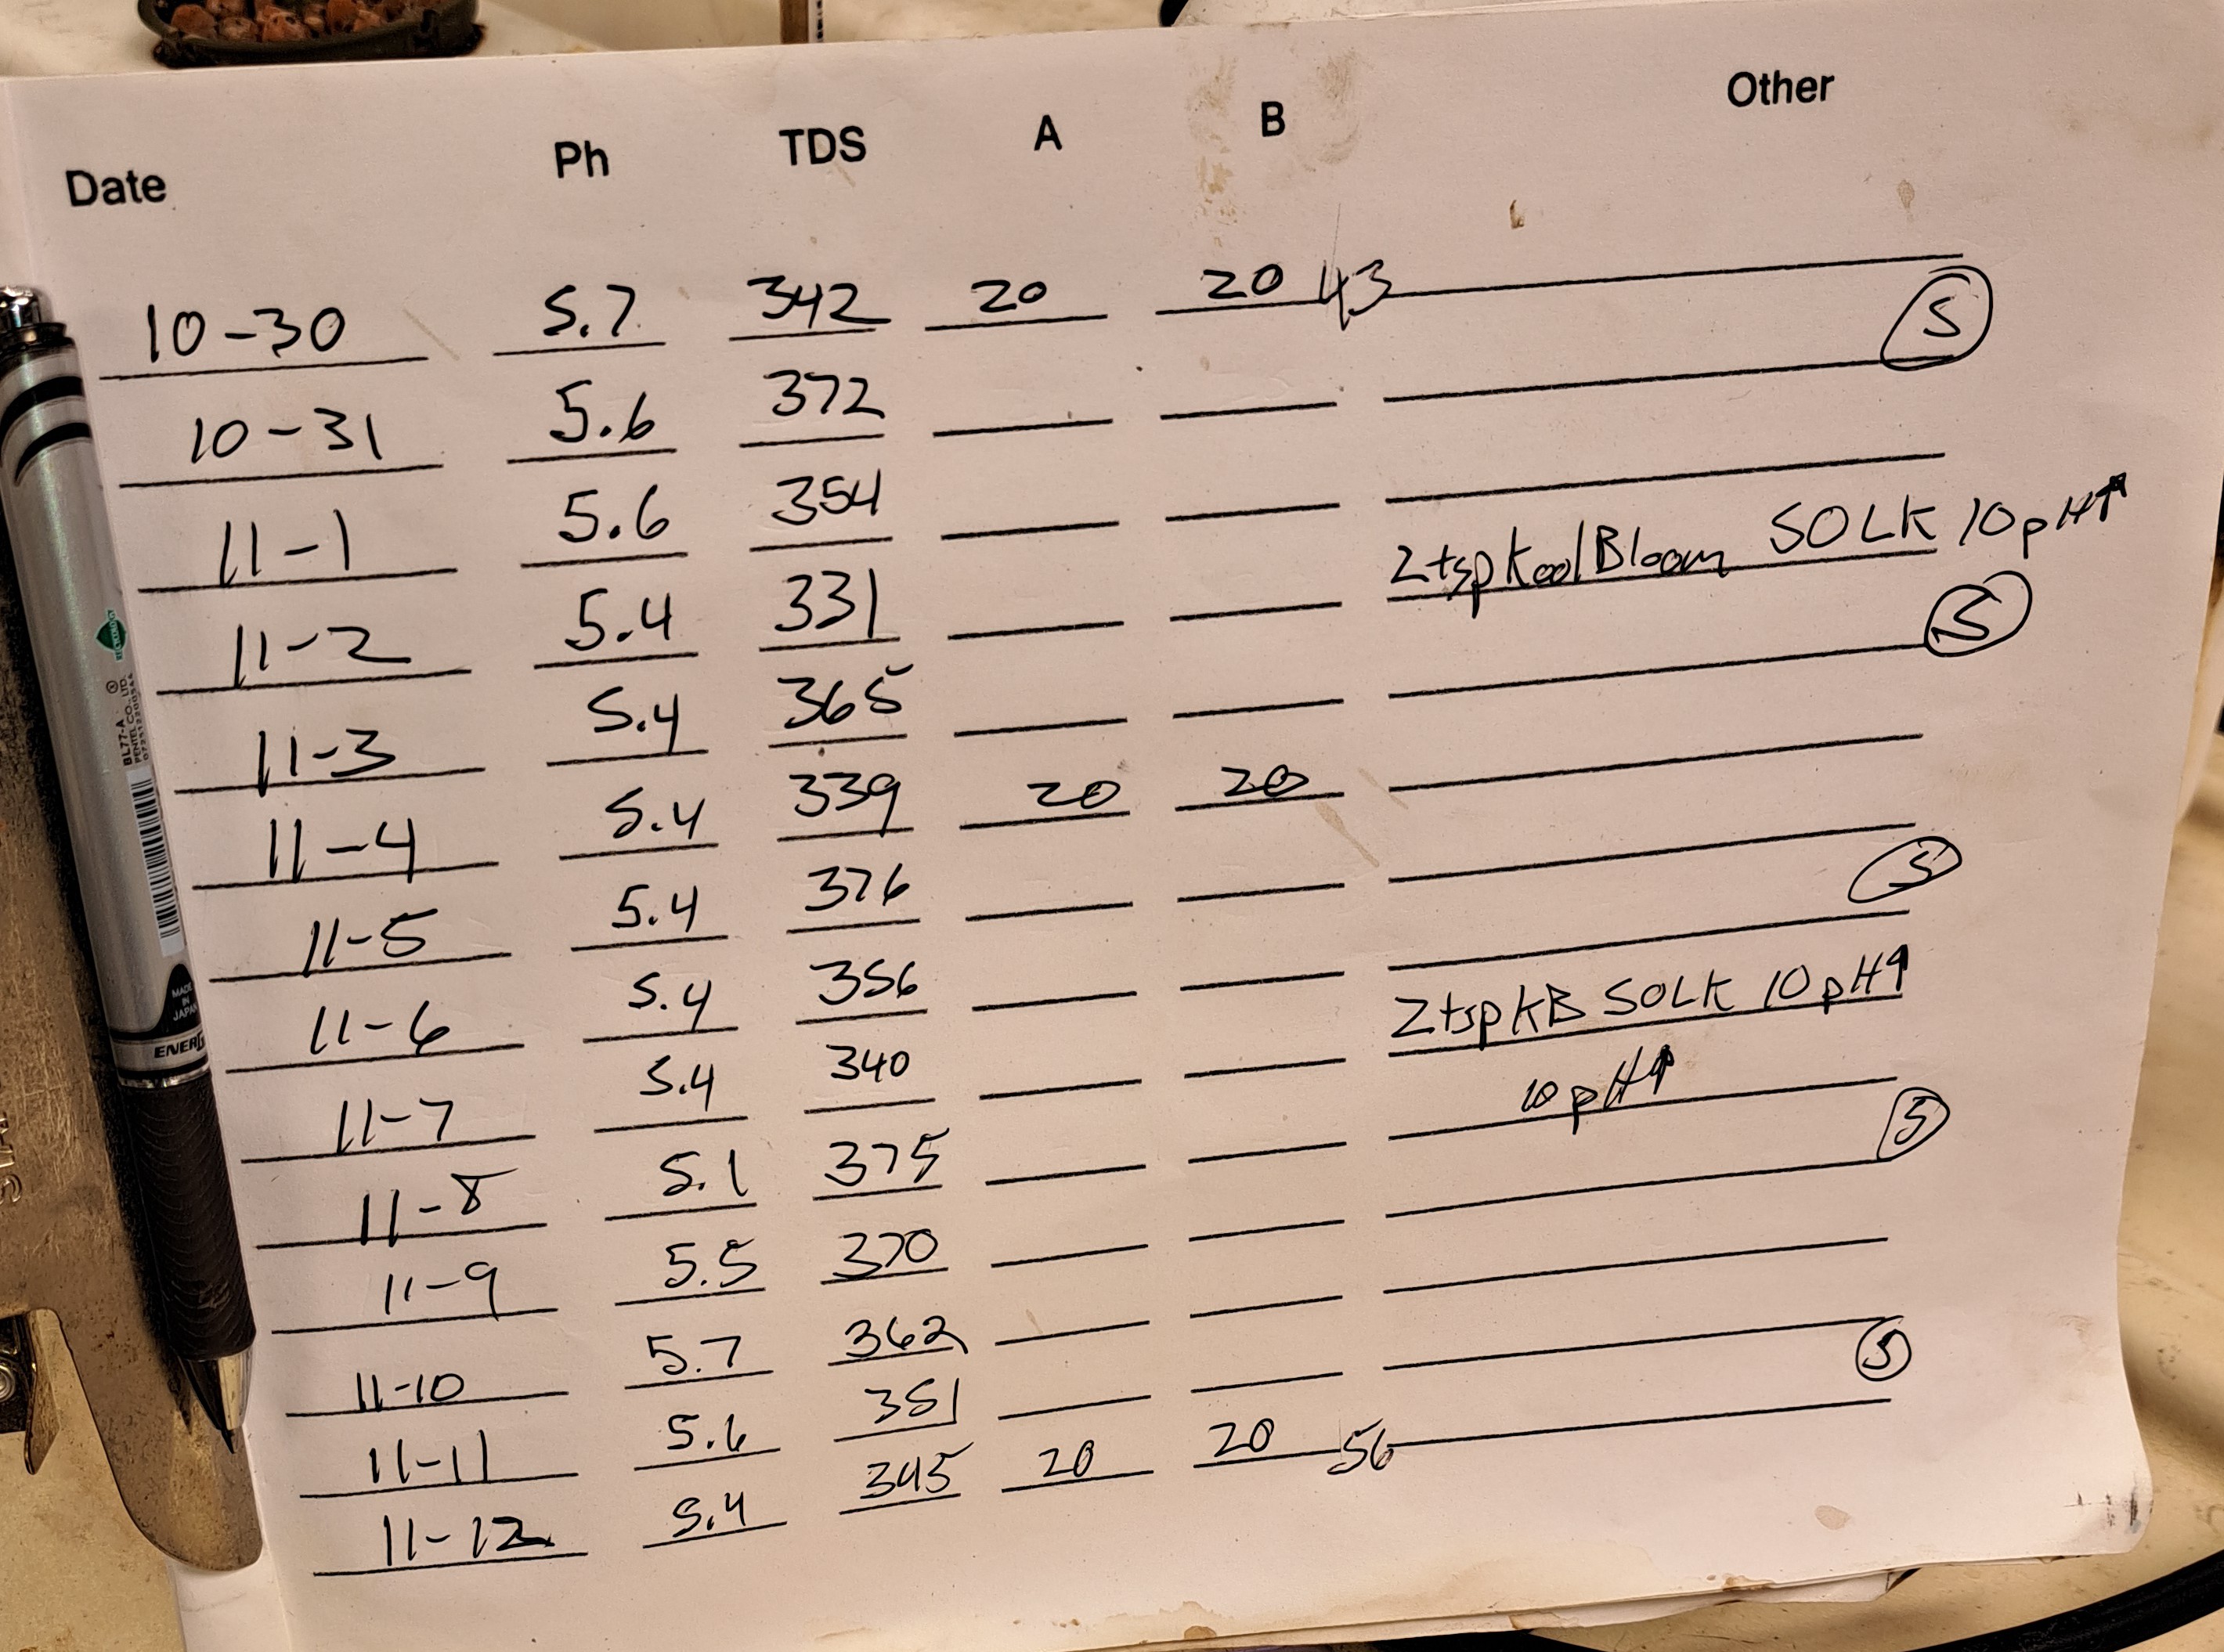 Date Ph TDS A B Other
10-30 5.7 342 20 20 43
10-31 5.6 372 S
11-1 5.6 354
11-2 5.4 331 2tsp KoolBloom 50LK 10pH↑
11-3 5.4 365 S
11-4 5.4 339 20 20
11-5 5.4 376
11-6 5.4 356 S
11-7 5.4 340 2tsp KB 50LK 10pH↑
11-8 5.1 375 10pH↑
11-9 5.5 370 S
11-10 5.7 362
11-11 5.6 351
11-12 5.4 345 20 20 56 S
BL77-A
PENTEL CO., LTD.
MADE
IN
JAPAN